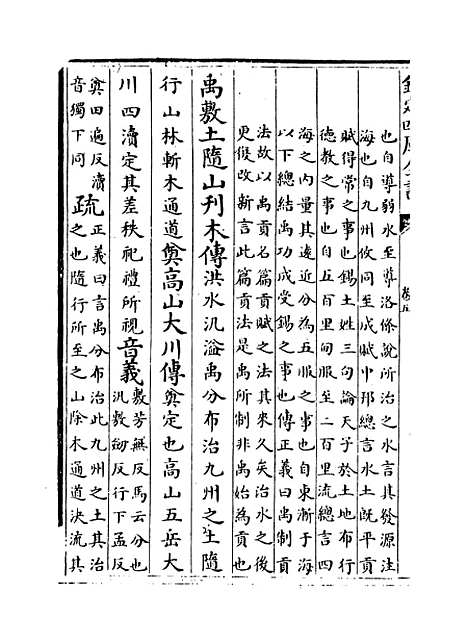 欽定四庫全書
也自導弱水至導洛條說所治之水言其發源注
海也自九州攸同至成賦中邦總言水土既平貢
賦得常之事也錫土姓三句論天子於土地布行
德教之事也自五百里甸服至二百里流總言四
海之內量其遠近分為五服之事也自東漸于海
以下總結禹功成受錫之事也傳正義曰禹制貢
法故以禹貢名篇貢賦之法其來久矣治水之後
更復改新言此篇貢法是禹所制非禹始為貢也
禹敷土隨山刋木傳洪水汎溢禹分布治九州之土隨
行山林斬木通道奠高山大川傳奠定也高山五岳大
川四瀆定其差秩祀禮所視音義敷芳無反馬云分也
汎敷劒反行下孟反
奠田遍反瀆
音獨下同
疏正義曰言禹分布治此九州之土其治
之也隨行所至之山除木通道決流其